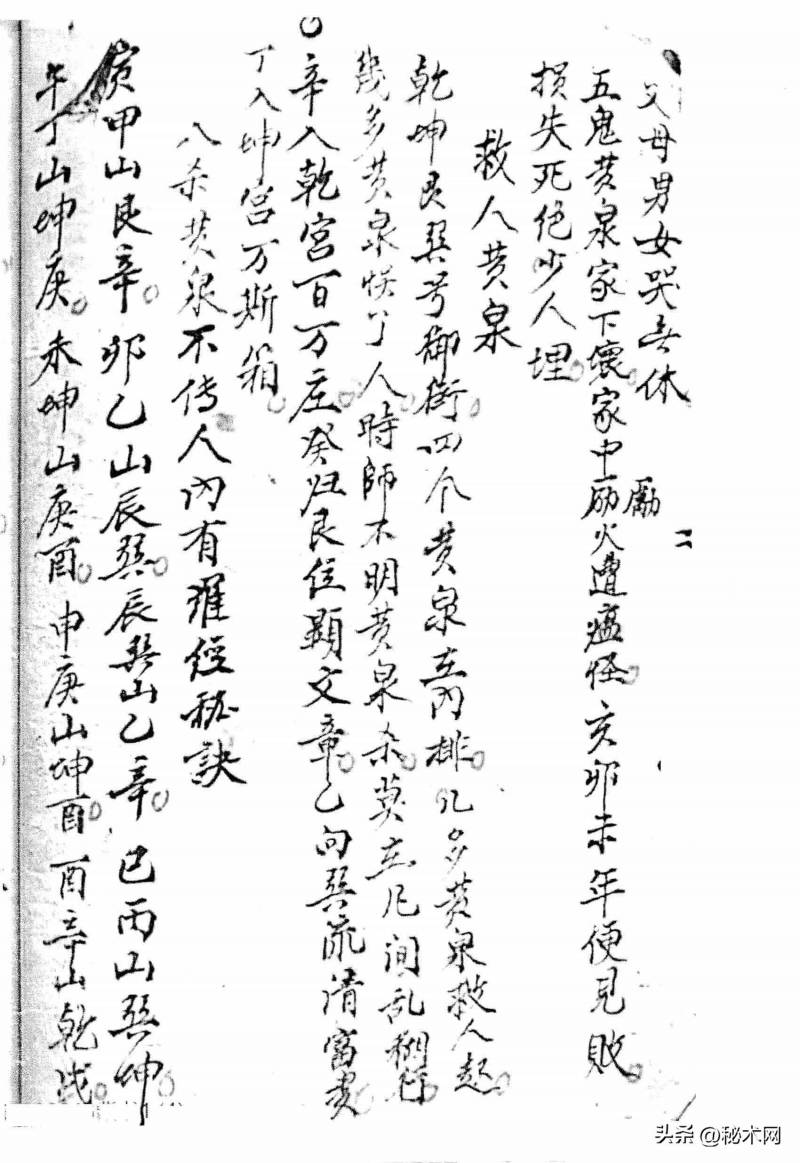 父母男女哭无休
五鬼黄泉家下壞家中励火遭瘟怪亥卯未年便見敗
勵
损失死绝少人埋
救人黄泉
乾坤艮巽号御街四个黄泉立内排几多黄泉救人起
幾多黄泉悮了人時師不明黄泉杀莫立凡间乱棚
辛入乾宮百万庄癸归艮位顕文章乙向巽流清富贵
丁入坤宮万斯箱
八杀黄泉不传人内有羅經秘訣
寅甲山艮辛卯乙山辰巽辰巽山乙辛巳丙山巽坤
午丁山坤庚未坤山庚酉申庚山坤酉酉辛山乾戌
头条 @秘术网